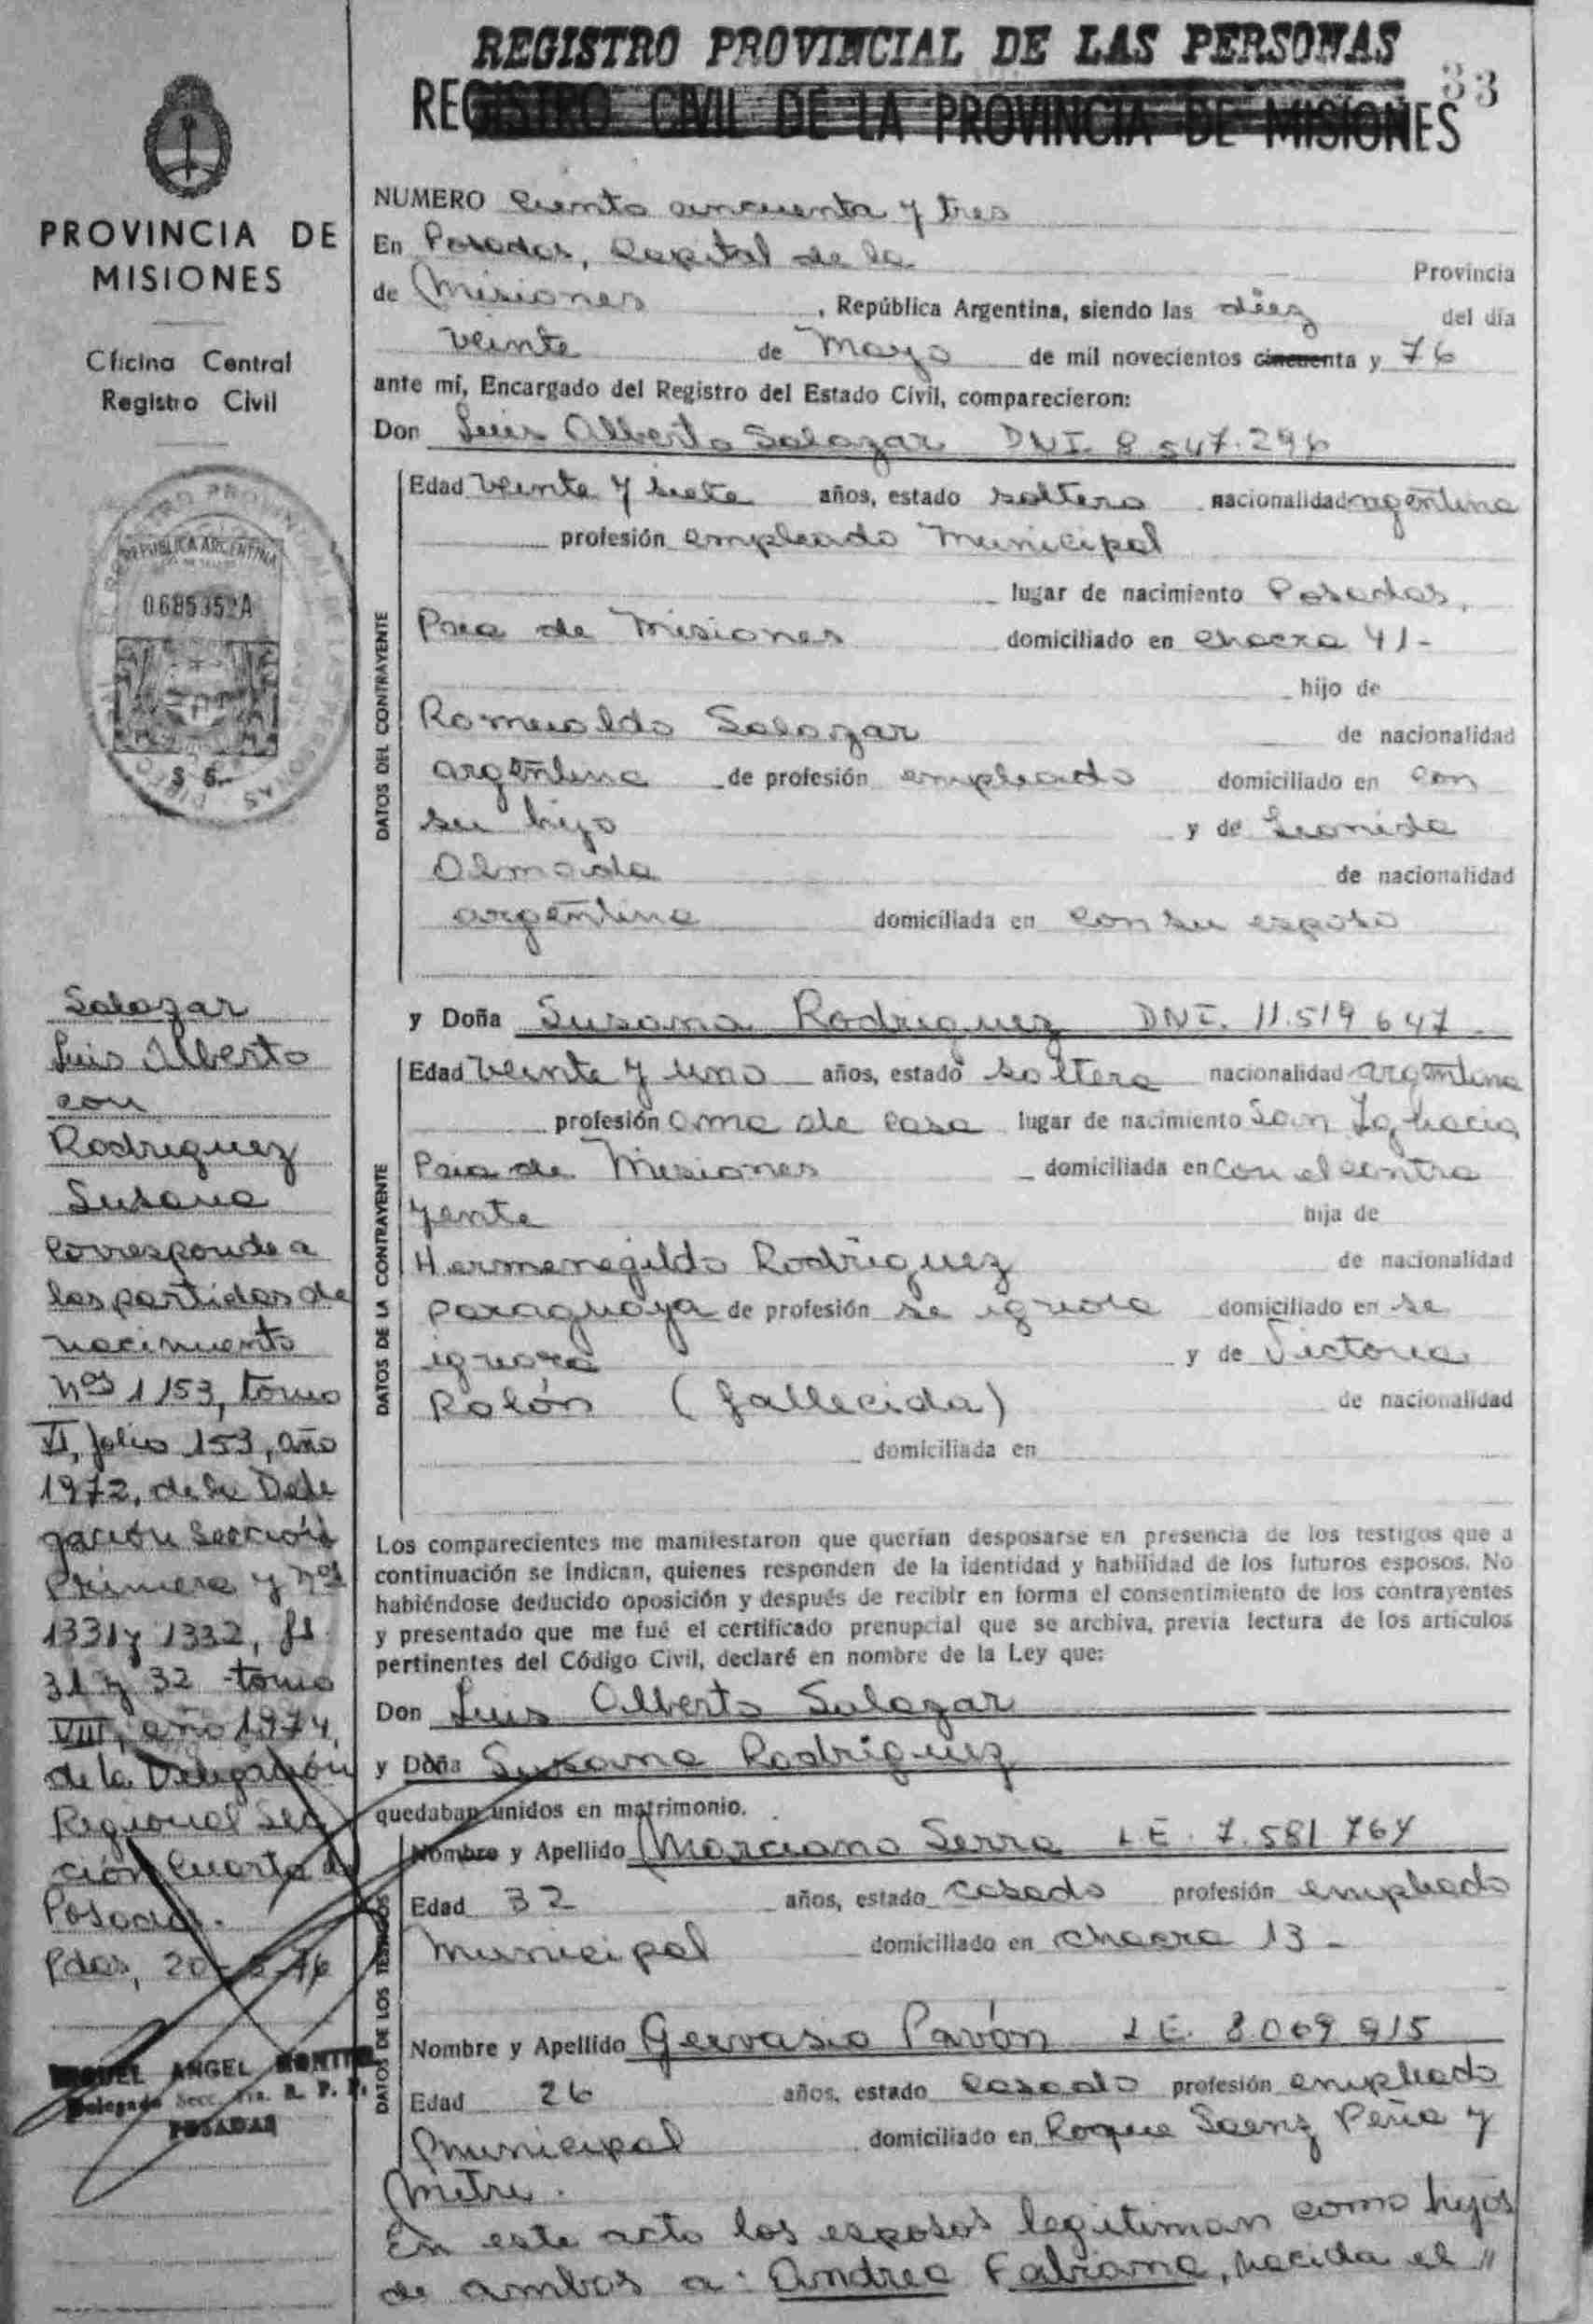 REGISTRO PROVINCIAL DE LAS PERSONAS
REGISTRO CIVIL DE LA PROVINCIA DE MISIONES
33
PROVINCIA DE
MISIONES
Oficina Central
Registro Civil
REPUBLICA ARGENTINA
0685352A
$ 5.-
Salazar
Luis Alberto
con
Rodriguez
Susana
Corresponde a
las partidas de
nacimiento
nos 1153, tomo
VI, folio 153, año
1972, de la Dele
gación Sección
Primera y nos
1331 y 1332, fs.
31 y 32 - tomo
VIII, año 1974,
de la Delegación
Regional Sec
ción Cuarta de
Posadas.
Pdas, 20-5-76
MIGUEL ANGEL
Delegado Secc. 4ta. R. P. P.
POSADAS
NUMERO Ciento cincuenta y tres
En Posadas, Capital de la Provincia
de Misiones, República Argentina, siendo las diez del día
veinte de Mayo de mil novecientos cincuenta y 76
ante mí, Encargado del Registro del Estado Civil, comparecieron:
Don Luis Alberto Salazar DNI. 8.547.296
DATOS DEL CONTRAYENTE
Edad veinte y siete años, estado soltero nacionalidad argentina
profesión empleado Municipal
lugar de nacimiento Posadas,
Pcia de Misiones domiciliado en chacra 41-
hijo de
Romualdo Salazar de nacionalidad
argentina de profesión empleado domiciliado en con
su hijo y de Leonida
Almada de nacionalidad
argentina domiciliada en con su esposo
y Doña Susana Rodriguez DNI. 11.519.647
DATOS DE LA CONTRAYENTE
Edad veinte y uno años, estado soltera nacionalidad argentina
profesión ama de casa lugar de nacimiento San Ignacio,
Pcia de Misiones domiciliada en con el contra
yente hija de
Hermenegildo Rodriguez de nacionalidad
paraguaya de profesión se ignora domiciliado en se
ignora y de Victoria
Rolón (fallecida) de nacionalidad
domiciliada en
Los comparecientes me manifestaron que querían desposarse en presencia de los testigos que a
continuación se indican, quienes responden de la identidad y habilidad de los futuros esposos. No
habiéndose deducido oposición y después de recibir en forma el consentimiento de los contrayentes
y presentado que me fué el certificado prenupcial que se archiva, previa lectura de los artículos
pertinentes del Código Civil, declaré en nombre de la Ley que:
Don Luis Alberto Salazar
y Doña Susana Rodriguez
quedaban unidos en matrimonio.
DATOS DE LOS TESTIGOS
Nombre y Apellido Marciano Serra L E. 7.581.764
Edad 32 años, estado casado profesión empleado
Municipal domiciliado en chacra 13-
Nombre y Apellido Gervasio Pavón L E. 8.069.915
Edad 26 años, estado casado profesión empleado
Municipal domiciliado en Roque Saenz Peña y
Mitre.
En este acto los esposos legitiman como hijos
de ambos a: Andrea Fabiana, nacida el 11